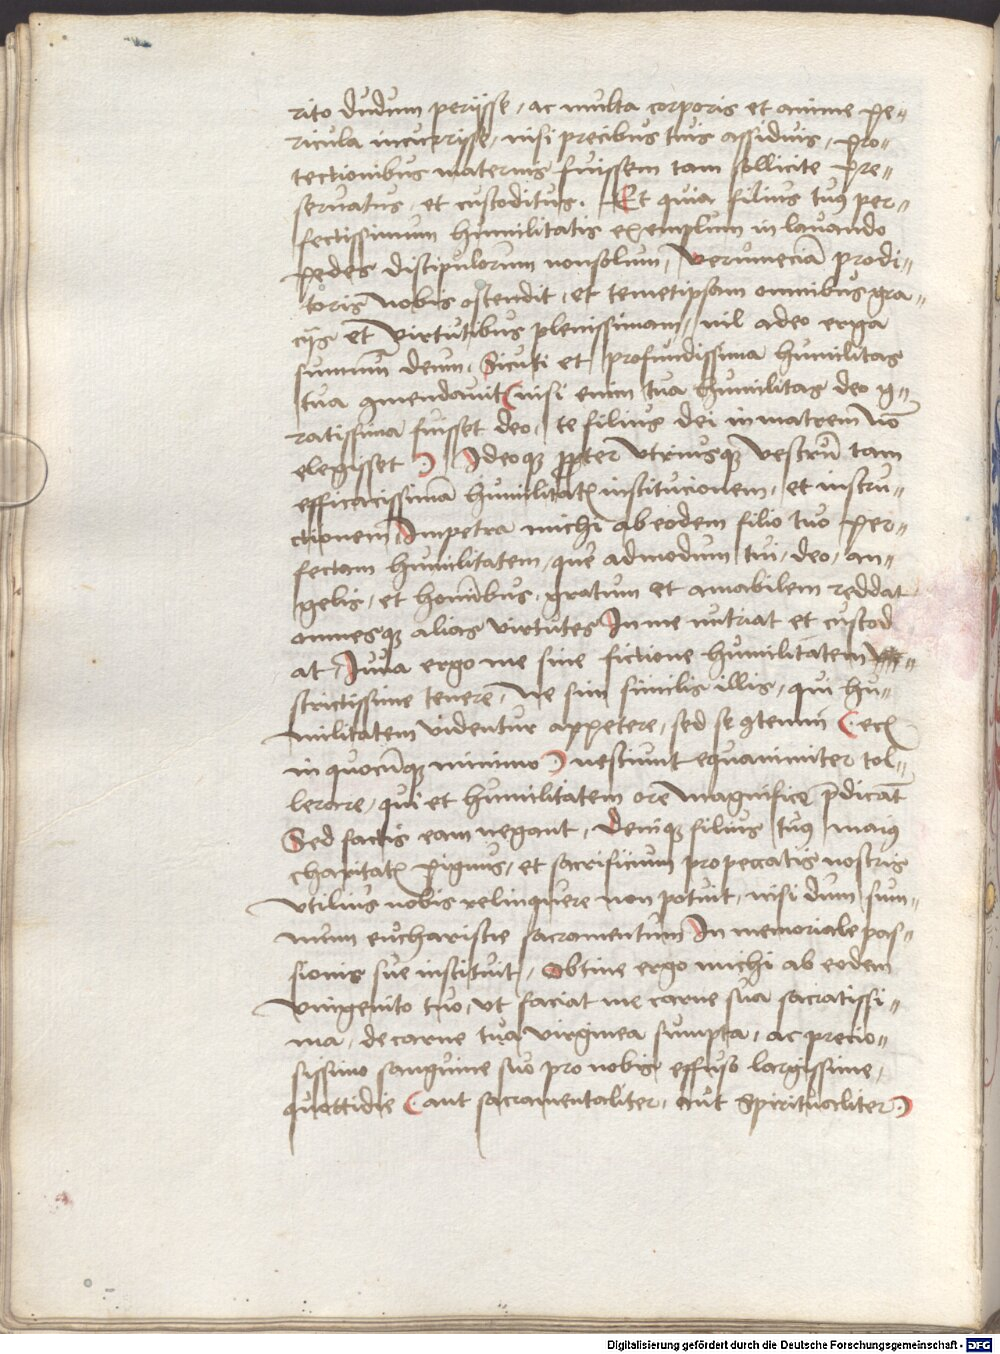 rito dudum perijsse, ac multa corporis et anime pe¬
ricula incurrisse, nisi precibus tuis assiduis, pro¬
tectionibus maternis fuissem tam sollicite pre¬
seruatus, et custoditus. Et quia filius tuꝰ per¬
fectissimum humilitatis exemplum in lauando
pedes discipulorum nonsolum, verūmeciā prodi¬
toris nobis ostendit, et temetipsam omnibus gra¬
cijs et virtutibus plenissimam, nil adeo erga
summū deum, Sicuti et profundissima humilitas
tua ꝯmendauit (nisi enim tua humilitas deo g¬
ratissima fuisset deo, te filius dei in matrem nō
elegisset) Ideoqꝫ ꝓpter vtriusqꝫ vestrū tam
efficacissimā humilitatꝭ institucionem, et instru¬
ctionem, Impetra michi ab eodem filio tuo per¬
fectam humilitatem, que admodum tui, deo, an¬
gelis, et hominibus, gratum et amabilem reddat
omnesqꝫ alias virtutes In me nutriat et custod
at, Iuua ergo me sine fictione humilitatem
strictissime tenere, Ne sim similis illis, qui hu¬
militatem videntur appetere, sed se ꝯtemni (ecꝭ
in quocūqꝫ minimo) nesciunt equanimiter tol¬
lerare, qui et humilitatem ore magnifice p̄dicāt
Sed factis eam negant, Deniqꝫ filius tuꝰ maiꝰ
charitatꝭ pignus, et sacrificium pro peccatis nostris
vtilius nobis relinquere non potuit, nisi dum sum¬
mum eucharistie sacramentum In memoriale pas¬
sionis sue instituit, Obtine ergo michi ab eodem
vnigenito tuo, vt faciat me carne sua sacratissi¬
ma, de carne tua virginea sumpta, ac precio¬
sissimo sanguine suo pro nobis effuso largissime,
quottidie (aut sacramentaliter, aut spiritualiter)
Digitalisierung gefördert durch die Deutsche Forschungsgemeinschaft - DFG